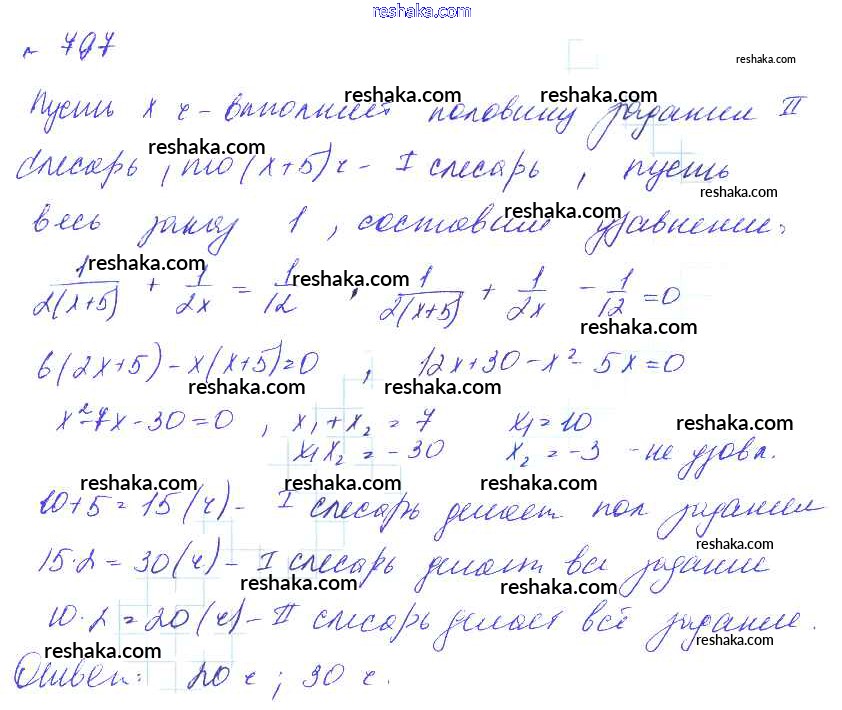 reshaka.com
№ 797
reshaka.com
Пусть x ч - выполнит половину задания II
reshaka.com reshaka.com
слесарь, то (x+5) ч - I слесарь, пусть
reshaka.com reshaka.com
весь заказ 1, составим уравнение:
reshaka.com
1/2(x+5) + 1/2x = 1/12, 1/2(x+5) + 1/2x - 1/12 = 0
reshaka.com reshaka.com reshaka.com
6(2x+5) - x(x+5) = 0, 12x+30-x²-5x=0
reshaka.com reshaka.com
x²-7x-30=0, x₁+x₂=7 x₁=10
reshaka.com
x₁x₂=-30 x₂=-3 - не удовл.
reshaka.com reshaka.com reshaka.com
10+5=15(ч) - I слесарь делает пол задания
reshaka.com
15·2=30(ч) - I слесарь делает все задание
reshaka.com reshaka.com
10·2=20(ч) - II слесарь делает всё задание.
reshaka.com
Ответ: 20 ч; 30 ч.
reshaka.com reshaka.com